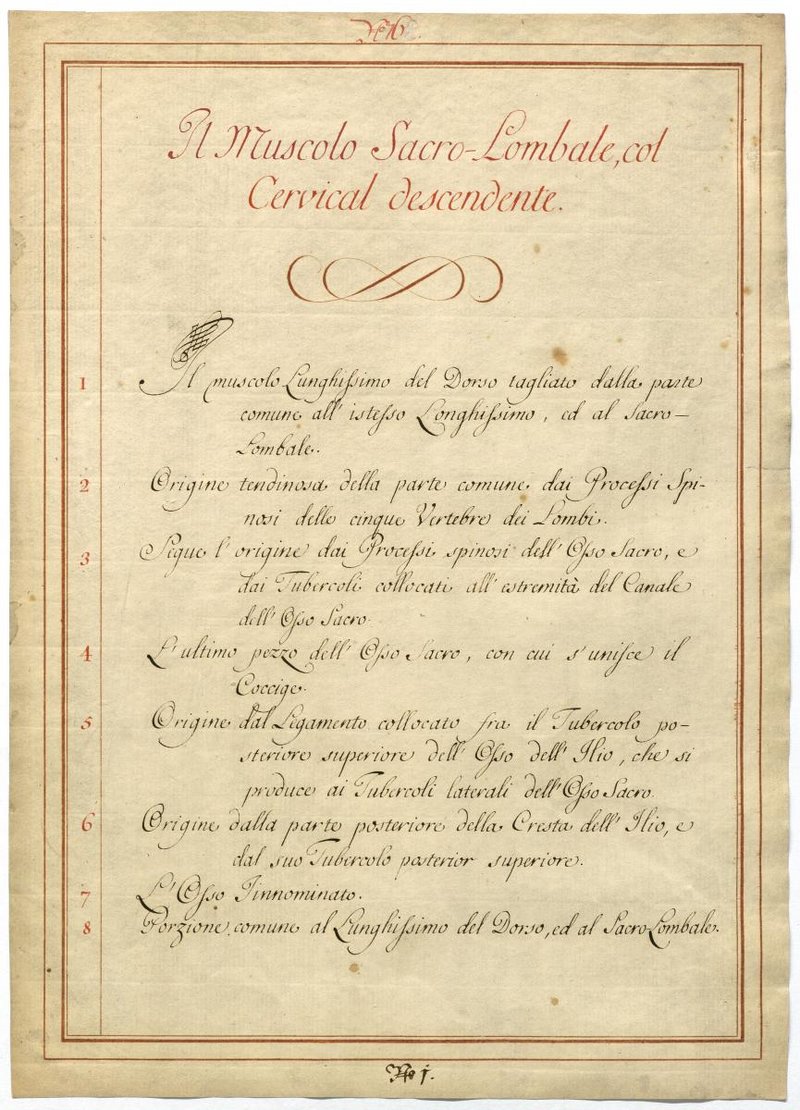 No 16.
Il Muscolo Sacro-Lombale, col
Cervical descendente.
1 Il muscolo Lunghissimo del Dorso tagliato dalla parte
comune all' istesso Longhissimo, ed al Sacro-
Lombale.
2 Origine tendinosa della parte comune dai Processi Spi-
nosi delle cinque Vertebre dei Lombi.
3 Segue l' origine dai Processi spinosi dell' Osso Sacro, e
dai Tubercoli collocati all' estremità del Canale
dell' Osso Sacro.
4 L' ultimo pezzo dell' Osso Sacro, con cui s' unisce il
Coccige.
5 Origine dal Legamento collocato fra il Tubercolo po-
steriore superiore dell' Osso dell' Ilio, che si
produce ai Tubercoli laterali dell' Osso Sacro.
6 Origine dalla parte posteriore della Cresta dell' Ilio, e
dal suo Tubercolo posterior superiore.
7 L' Osso Iinnominato.
8 Porzione comune al Lunghissimo del Dorso, ed al Sacro-Lombale.
No 1.